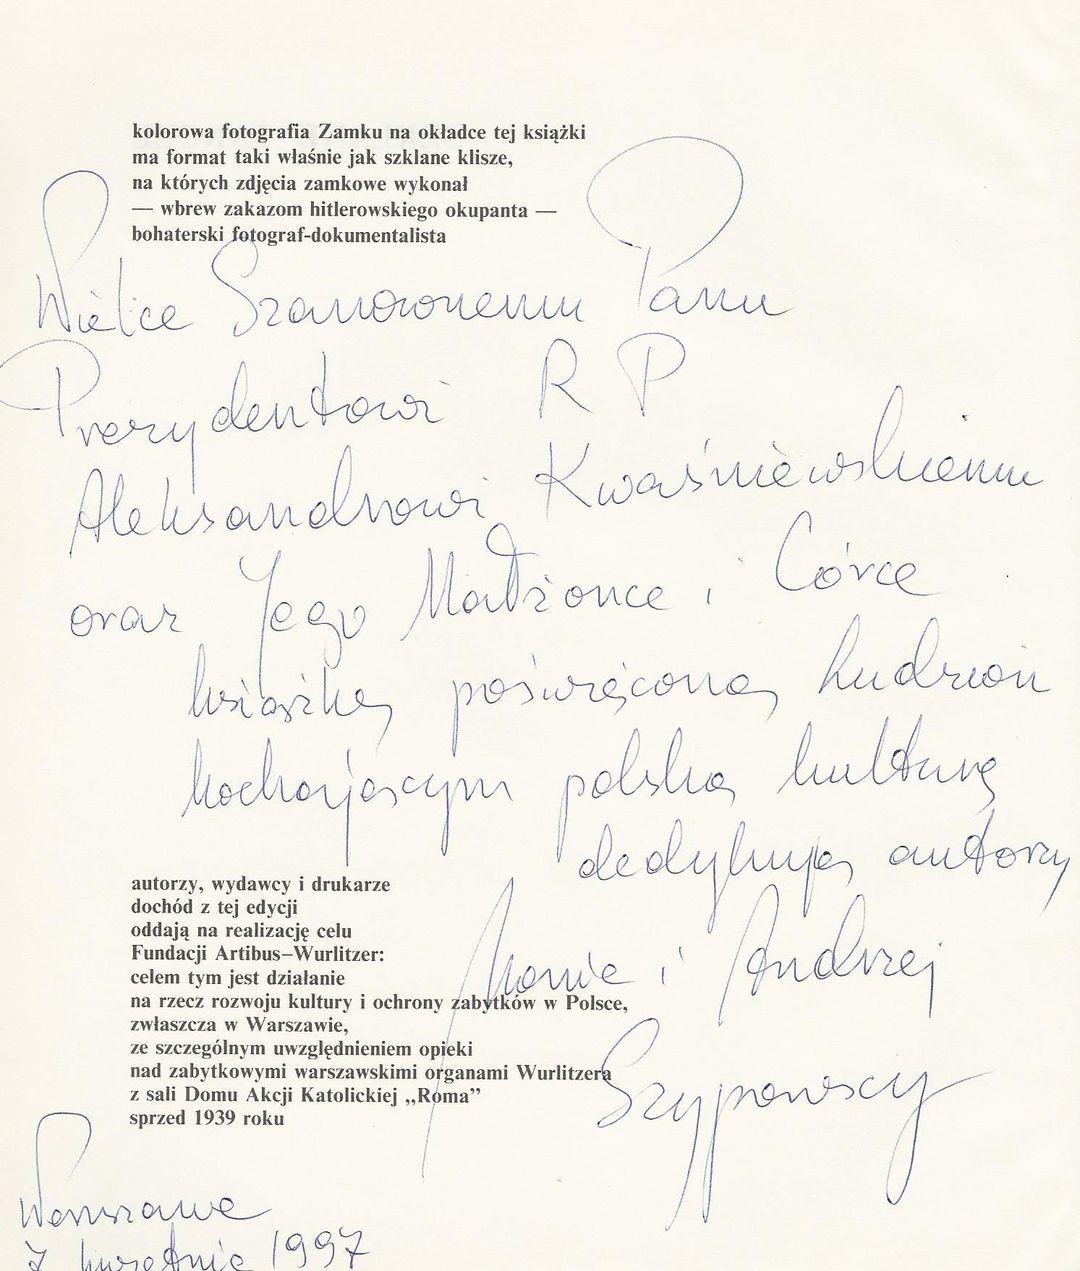 kolorowa fotografia Zamku na okładce tej książki
ma format taki właśnie jak szklane klisze,
na których zdjęcia zamkowe wykonał
— wbrew zakazom hitlerowskiego okupanta —
bohaterski fotograf-dokumentalista
Wielce Szanownemu Panu
Prezydentowi R P
Aleksandrowi Kwaśniewskiemu
oraz Jego Małżonce i Córce
książkę poświęconą ludziom
kochającym polską kulturę
dedykują autorzy
autorzy, wydawcy i drukarze
dochód z tej edycji
oddają na realizację celu
Fundacji Artibus–Wurlitzer:
celem tym jest działanie
na rzecz rozwoju kultury i ochrony zabytków w Polsce,
zwłaszcza w Warszawie,
ze szczególnym uwzględnieniem opieki
nad zabytkowymi warszawskimi organami Wurlitzera
z sali Domu Akcji Katolickiej „Roma”
sprzed 1939 roku
i Andrzej
Szypowscy
Warszawa
7 kwietnia 1997